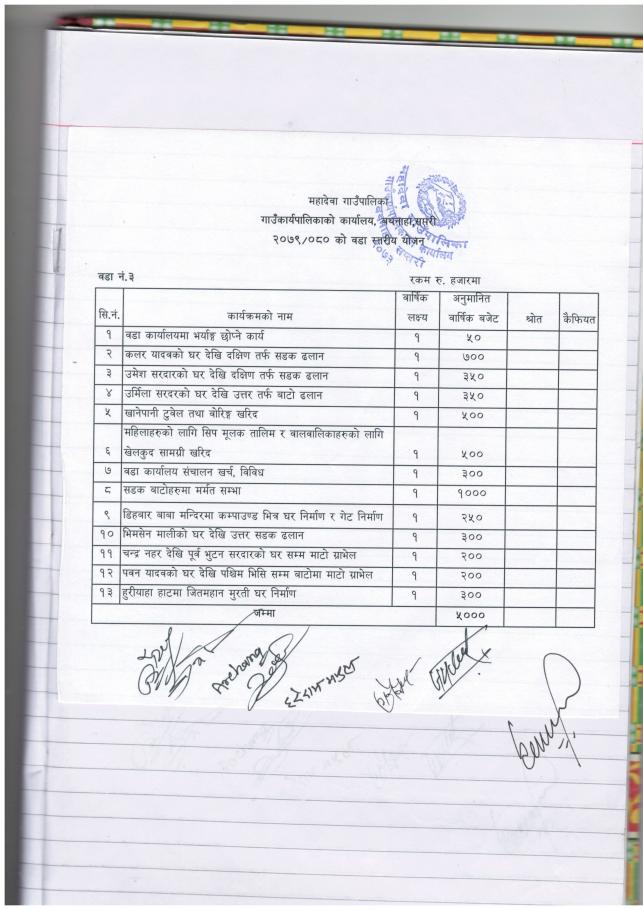 महादेवा गाउँपालिका
गाउँकार्यपालिकाको कार्यालय, बथनाहा,सप्तरी
२०७९/०८० को वडा स्तरीय योजना
वडा नं.३ रकम रु. हजारमा
सि.नं. कार्यक्रमको नाम वार्षिक लक्ष्य अनुमानित वार्षिक बजेट श्रोत कैफियत
१ वडा कार्यालयमा भर्याङ्ग छोप्ने कार्य १ ५०
२ कलर यादवको घर देखि दक्षिण तर्फ सडक ढलान १ ७००
३ उमेश सरदारको घर देखि दक्षिण तर्फ सडक ढलान १ ३५०
४ उर्मिला सरदरको घर देखि उत्तर तर्फ बाटो ढलान १ ३५०
५ खानेपानी टुवेल तथा बोरिङ्ग खरिद १ ५००
महिलाहरुको लागि सिप मूलक तालिम र वालवालिकाहरुको लागि
६ खेलकुद सामग्री खरिद १ ५००
७ वडा कार्यालय संचालन खर्च, विविध १ ३००
८ सडक बाटोहरुमा मर्मत सम्भा १ १०००
९ डिहवार बाबा मन्दिरमा कम्पाउण्ड भित्र घर निर्माण र गेट निर्माण १ २५०
१० भिमसेन मालीको घर देखी उत्तर सडक ढलान १ ३००
११ चन्द्र नहर देखि पूर्व भुटन सरदारको घर सम्म माटो ग्राभेल १ २००
१२ पवन यादवको घर देखि पश्चिम भिसि सम्म बाटोमा माटो ग्राभेल १ २००
१३ हुरीयाहा हाटमा जितमहान मुरती घर निर्माण १ ३००
जम्मा ५०००